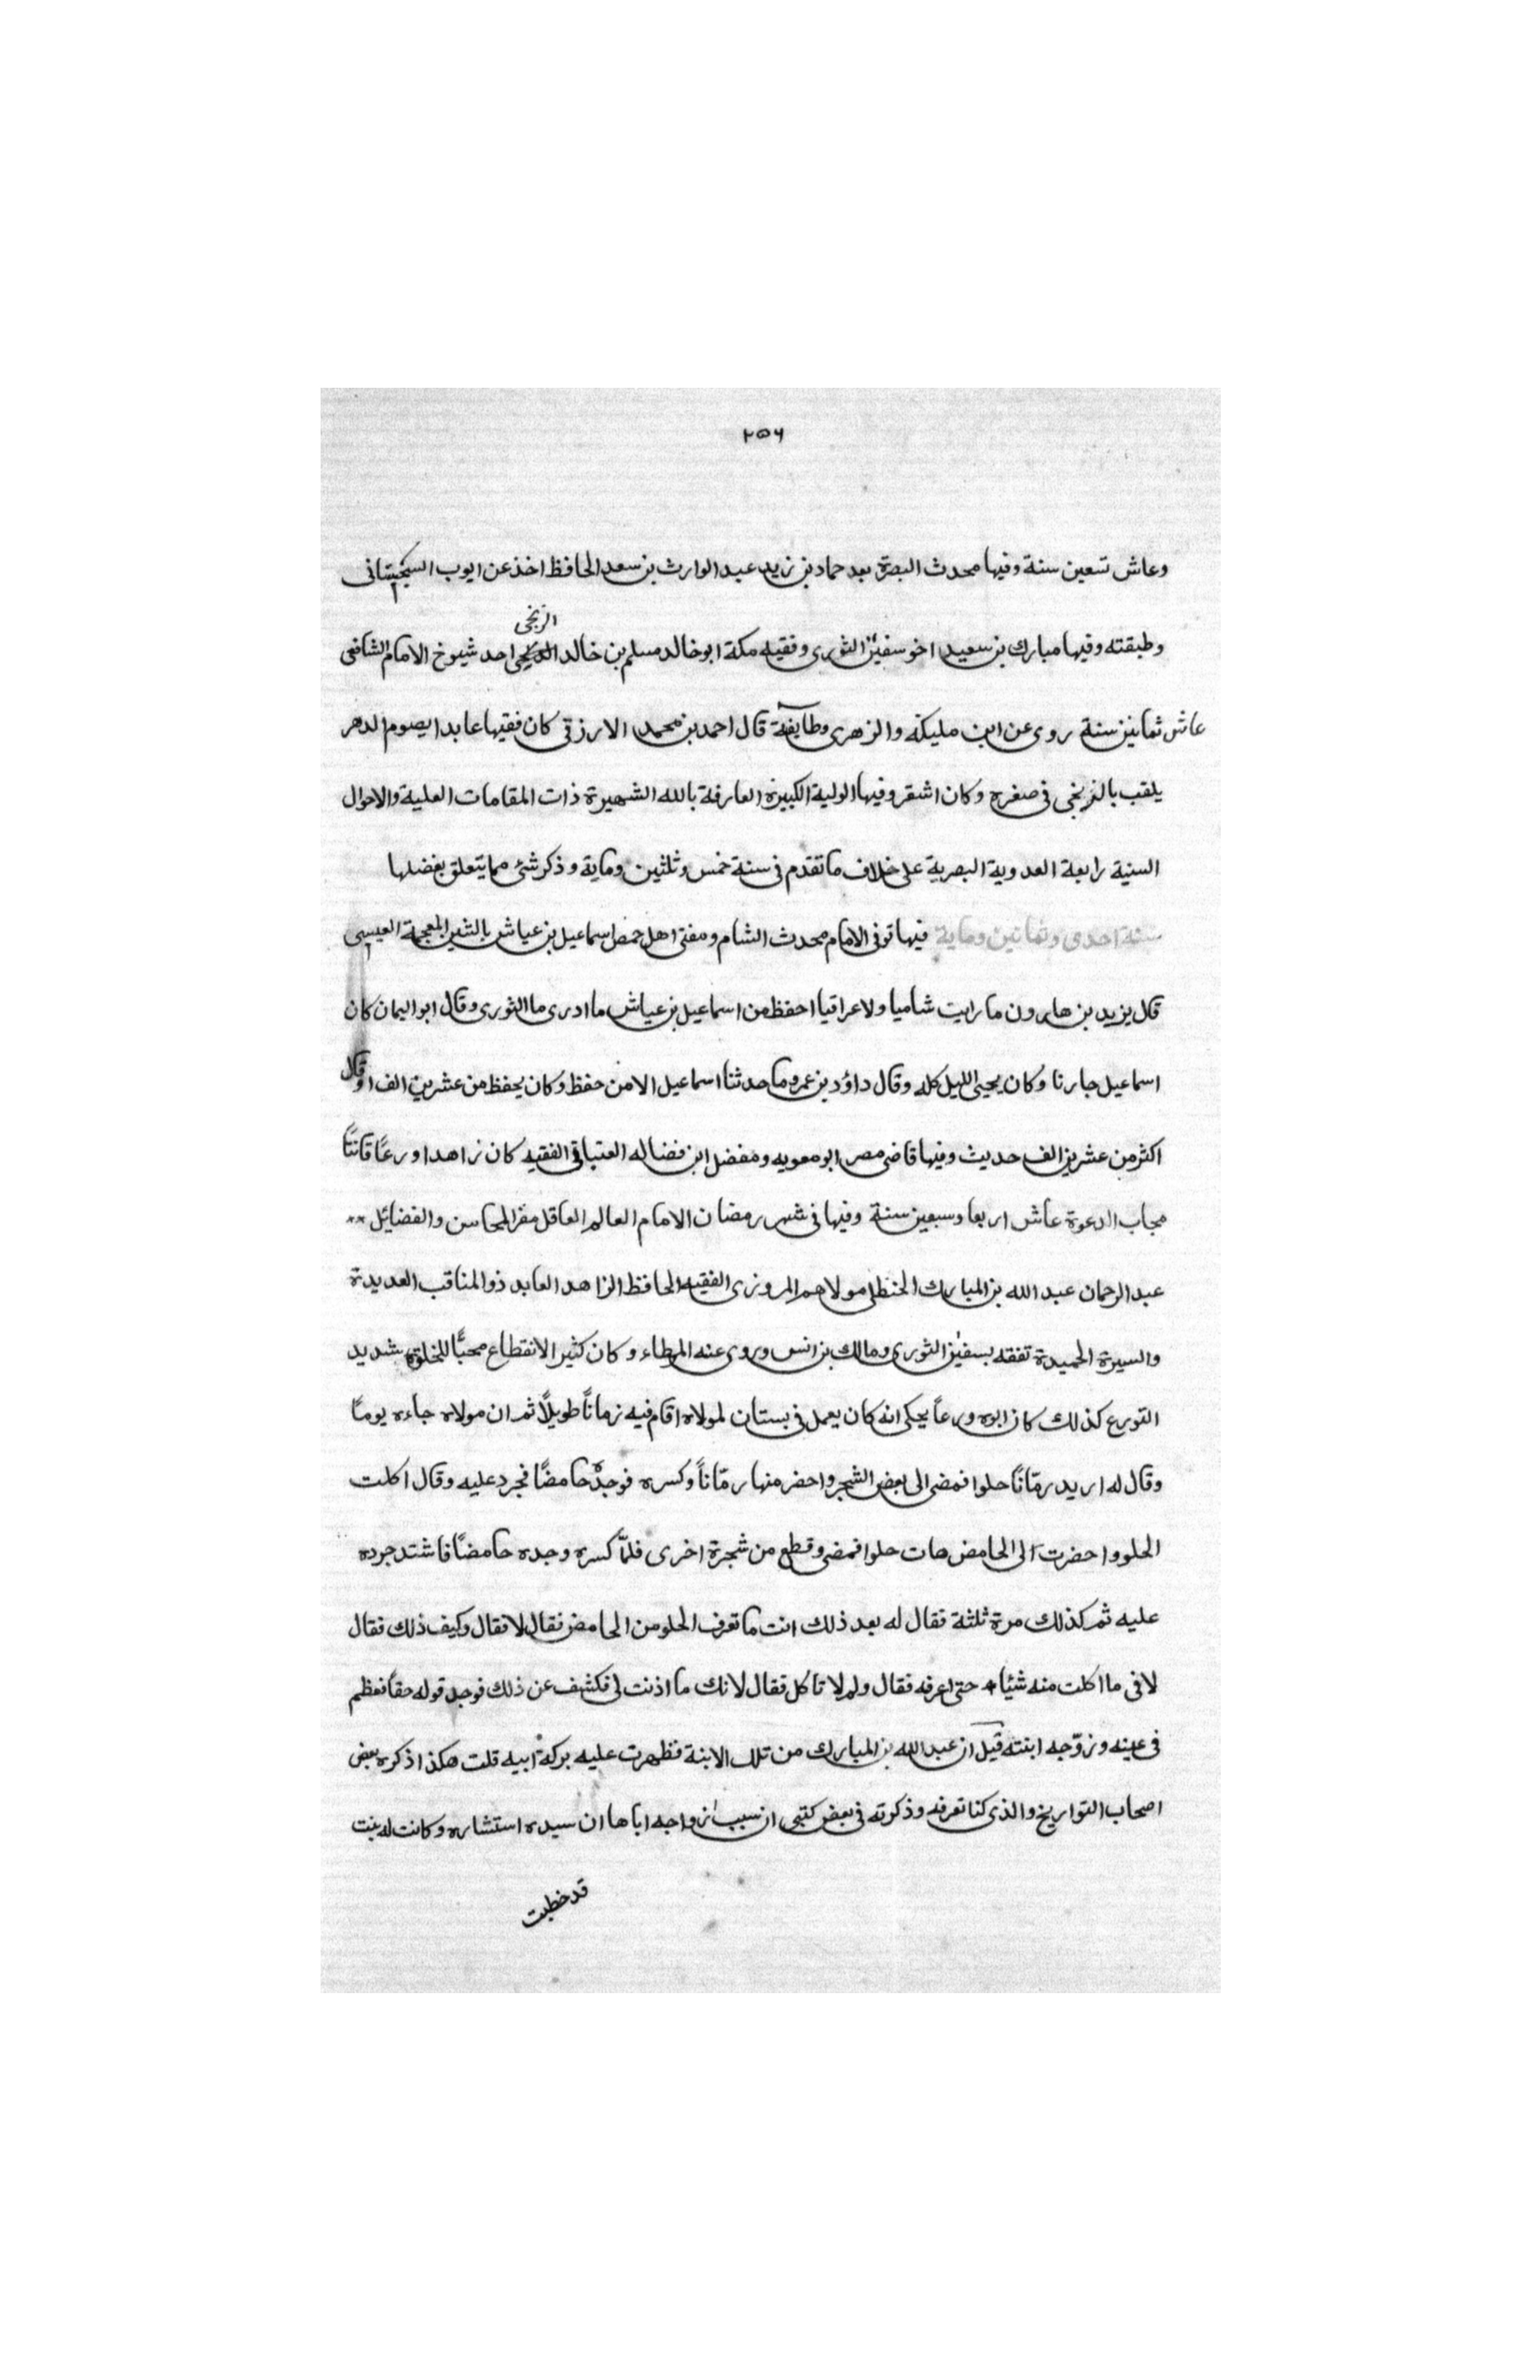 ٢٥٦
وعاش تسعين سنة وفيها محدث البصرة بعد حماد بن زيد عبد الوارث بن سعد الحافظ اخذ عن ايوب السختيانى
الزنجى
وطبقته وفيها مبارك بن سعيد اخو سفين الثورى وفقيه مكة ابو خالد مسلم بن خالد احد شيوخ الامام الشافعى
عاش ثمانين سنة روى عن ابن مليكة والزهرى وطايفة قال احمد بن محمد الارزقى كان فقيها عابدا يصوم الدهر
يلقب بالزنجى فى صغره وكان اشقر وفيها الولية الكبيرة العارفة بالله الشهيرة ذات المقامات العلية والاحوال
السنية رابعة العدوية البصرية على خلاف ما تقدم فى سنة خمس وثلثين وماية وذكر شئ مما يتعلق بفضلها
سنة احدى وثمانين وماية فيها توفى الامام محدث الشام ومفتى اهل حمص اسماعيل بن عياش بالشين المعجمة العيسى
قال يزيد بن هارون ما رايت شاميا ولا عراقيا احفظ من اسماعيل بن عياش ما ادرى ما الثورى وقال ابو اليمان كان
اسماعيل جارنا وكان يحيى الليل كله وقال داؤد بن عمرو ما حدثنا اسماعيل الا من حفظه وكان يحفظ من عشرين الف او قال
اكثر من عشرين الف حديث وفيها قاضى مصر ابو معويه ومفضل ابن فضاله العتباقى الفقيه كان زاهدا ورعًا قانتًا
مجاب الدعوة عاش اربعا وسبعين سنة وفيها فى شهر رمضان الامام العالم العاقل مقر المحاسن والفضايل
عبد الرحمان عبد الله بن المبارك الحنظلى مولاهم المروزى الفقيه الحافظ الزاهد العابد ذو المناقب العديدة
والسيرة الحميدة تفقه بسفين الثورى ومالك بن انس وروى عنه الموطاء وكان كثير الانقطاع محبًّا للخلوة شديد
التورع كذلك كان ابوه ورعاً يحكى انه كان يعمل فى بستان لمولاه اقام فيه زماناً طويلاً ثم ان مولاه جاءه يومًا
وقال له اريد رمّانًا حلوا فمضى الى بعض الشجر واحضر منها رمّاناً وكسره فوجده حامضًا فجرد عليه وقال اكلت
الحلو واحضرت الى الحامض هات حلوا فمضى وقطع من شجرة اخرى فلمّا كسره وجده حامضًا فاشتد جرده
عليه ثم كذلك مرة ثلثة فقال له بعد ذلك انت ما تعرف الحلو من الحامض فقال لا فقال وكيف ذلك فقال
لافى ما اكلت منه شيًا حتى اعرفه فقال ولم لا تاكل فقال لانك ما اذنت لى فكشف عن ذلك فوجد قوله حقًا فعظم
فى عينه وزوّجه ابنته قيل ان عبد الله بن المبارك من تلك الابنة فظهرت عليه بركة ابيه قلت هكذا ذكره بعض
اصحاب التواريخ والذى كنا نعرفه وذكرته فى بعض كتبى ان سبب زواجه اباها ان سيده استشاره وكانت له بنت
قد خطبت